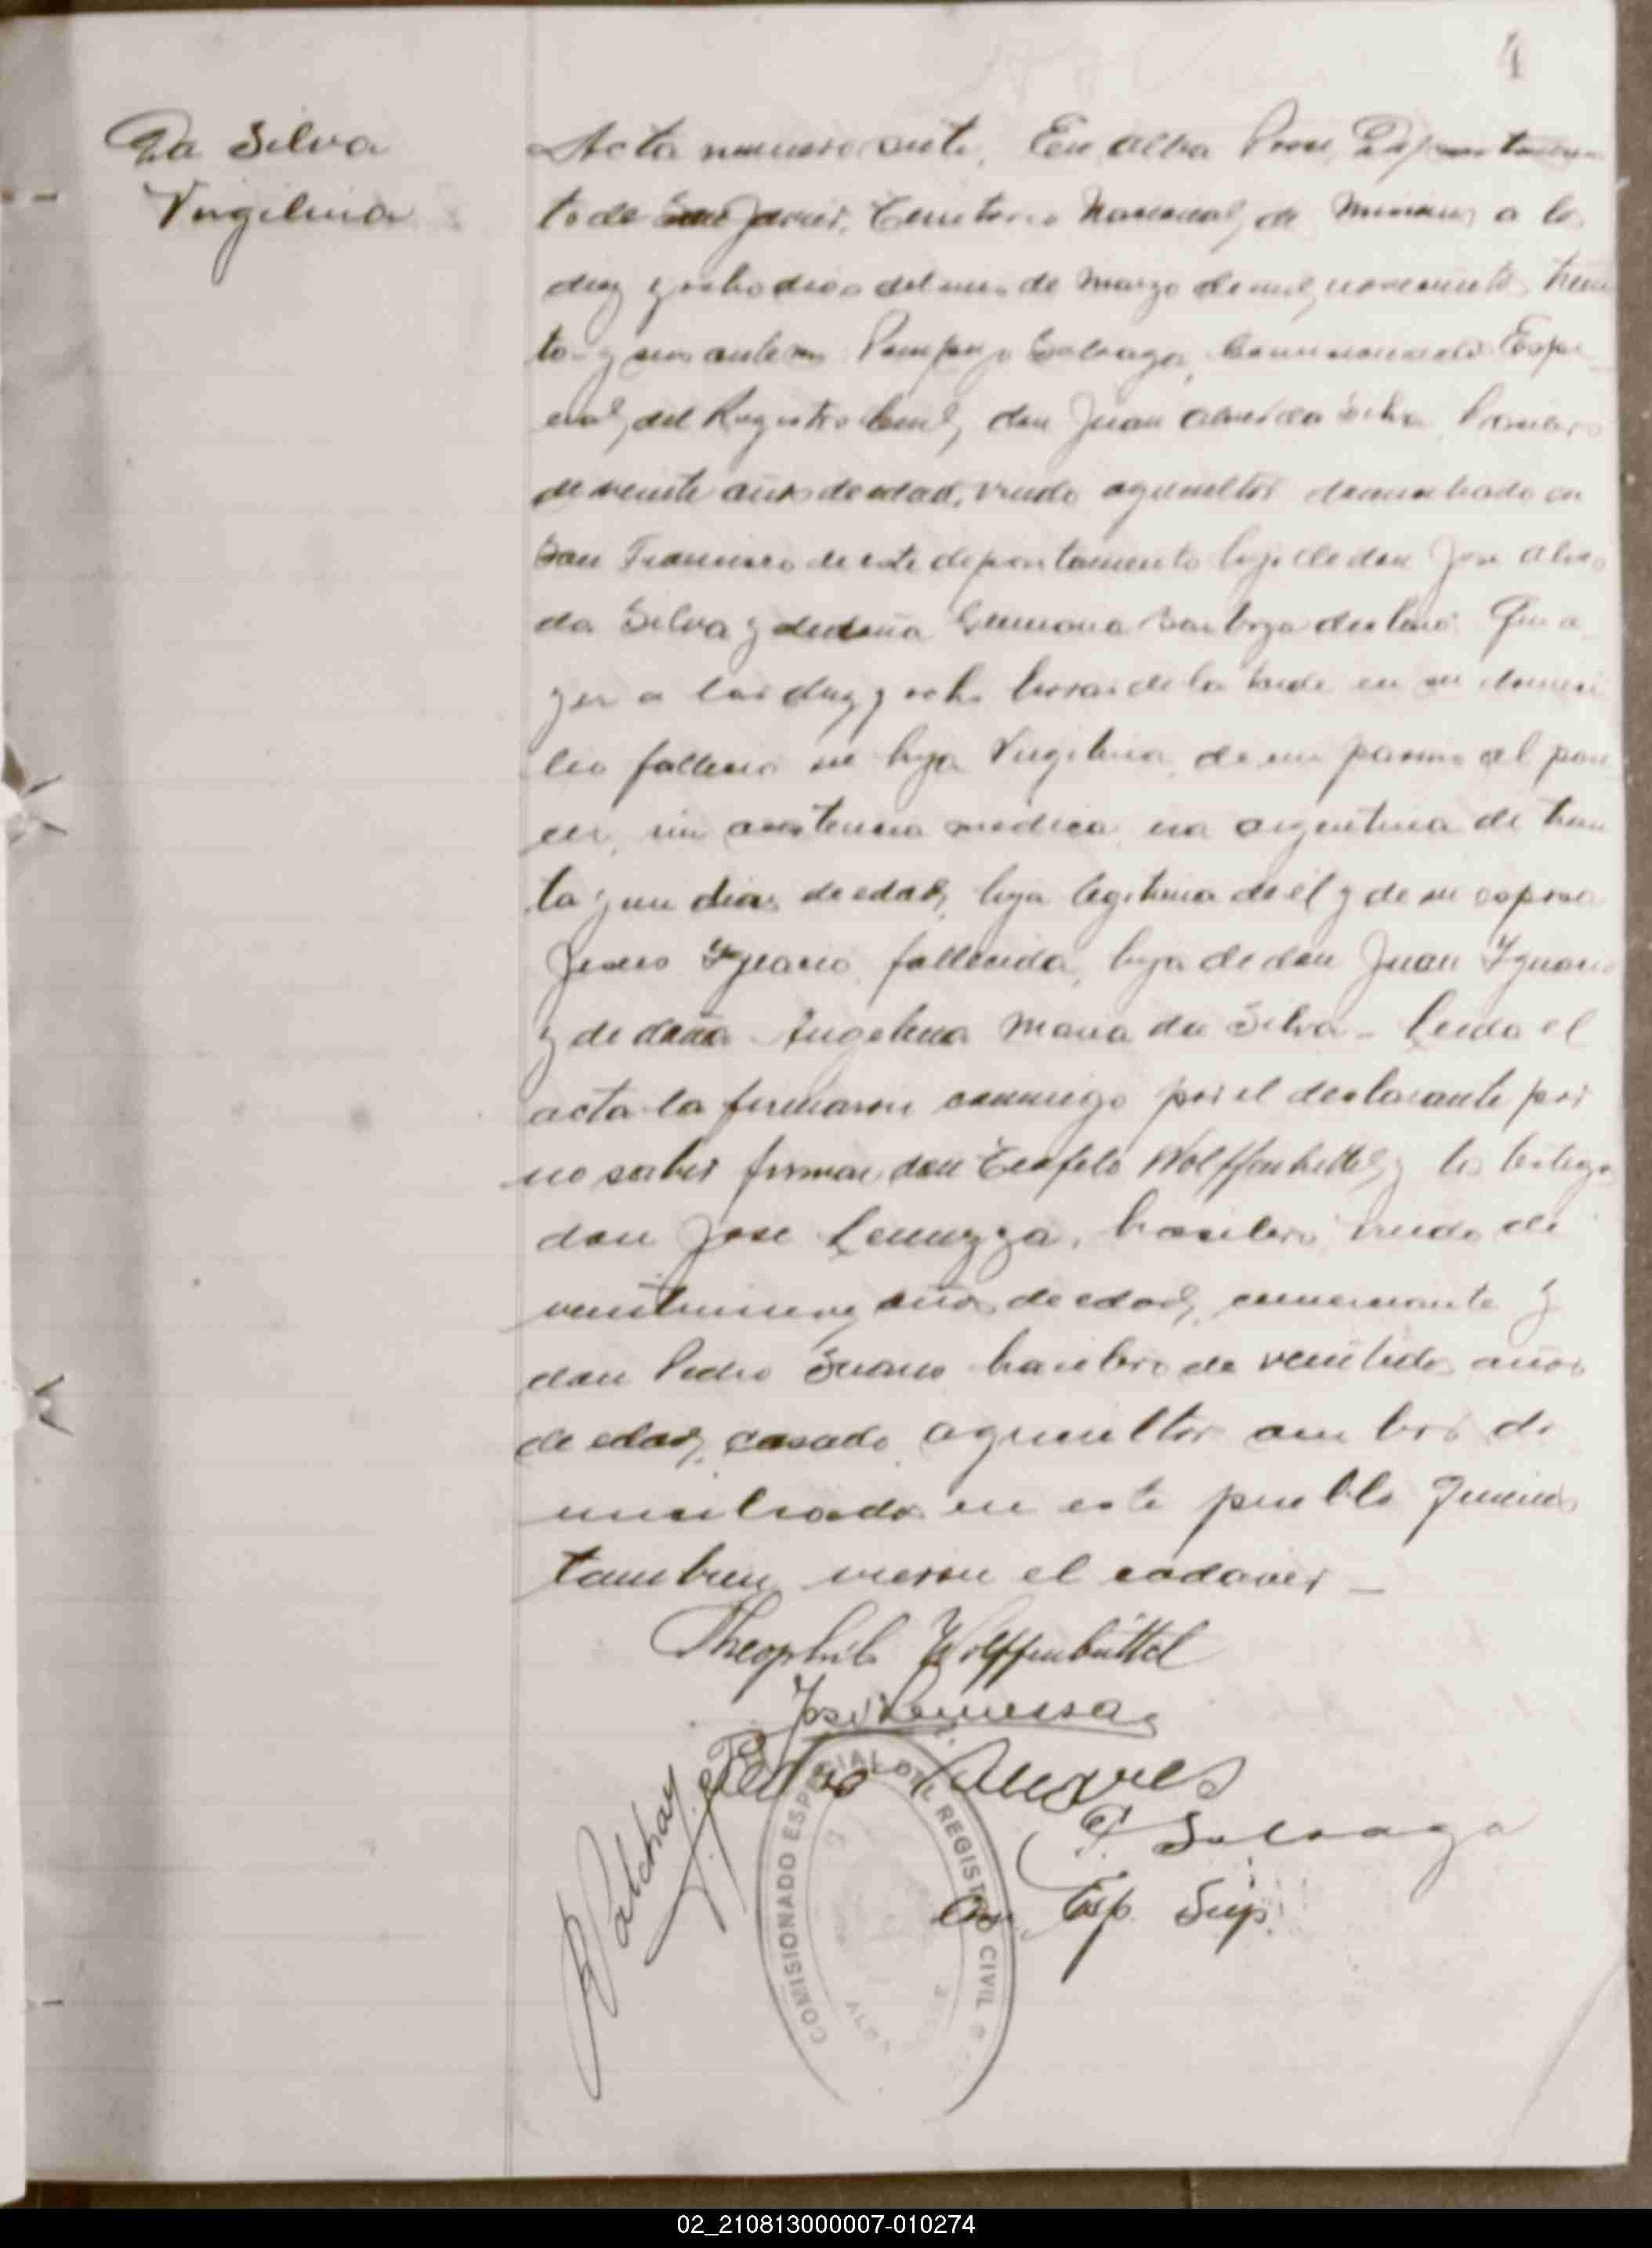 4
Da Silva
Virgilina
Acta numero siete. En Alba Posse, Departamen
to de San Javier, Territorio Nacional de Misiones a los
diez y ocho dias del mes de Marzo de mil novecientos trein
ta y uno ante mi Pompeyo Salvago, Comisionado Espe
cial del Registro Civil, don Juan Almeida Silva, brasilero
de veinte años de edad, viudo agricultor domiciliado en
San Francisco de este departamento hijo de don Jose Almei
da Silva y de doña Germana Barboza declaró: Que a
yer a las diez y ocho horas de la tarde en su domici
lio fallecio su hija Virgilina, de un pasmo al pare
cer, sin asistencia medica, era argentina de trein
ta y un dias de edad, hija legitima de él y de su esposa
Ignacio, fallecida, hija de don Juan Ignacio
y de doña Angelina Maria da Silva - Leida el
acta la firmaron conmigo por el declarante por
no saber firmar don Teofilo Wolffenbüttel y los testigos
don Jose Lemuzza, brasilero viudo de
veintinueve años de edad, comerciante y
don Pedro brasilero de veintidos años
de edad, casado, agricultor ambos do
miciliados en este pueblo quienes
tambien vieron el cadaver -
Theophilo Wolffenbüttel
José Lemessa
Pedro
P. Salvago
Esp. Sup.
COMISIONADO ESPECIAL DEL REGISTRO CIVIL
02_210813000007-010274